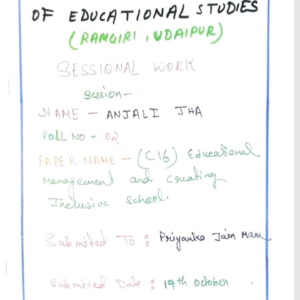 OF EDUCATIONAL STUDIES
(RAMGIRI, UDAIPUR)
SESSIONAL WORK
Session-
NAME - ANJALI JHA
ROLL NO - 02
PAPER NAME - (C16) Educational
Management and Creating
Inclusive School.
Submitted To : Priyanka Jain Mam
Submitted Date : 19th October